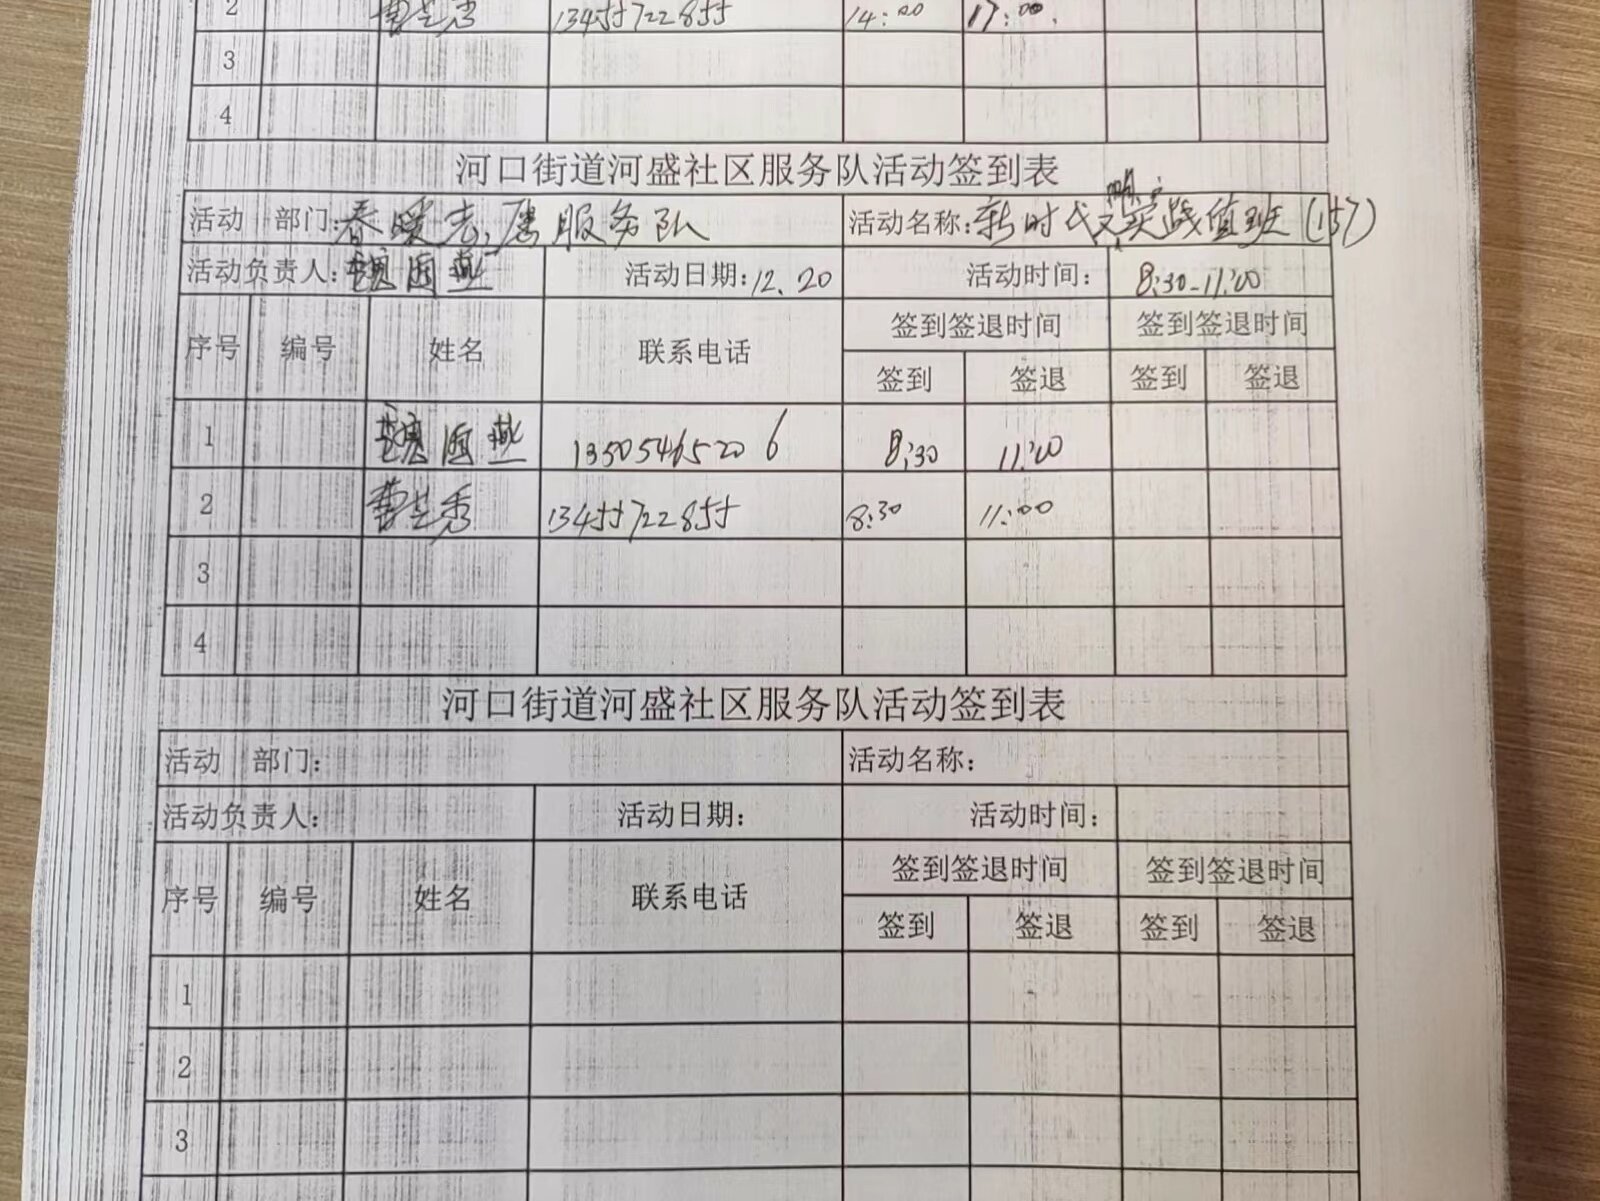 2 曹兰秀 13455722855 14:00 17:00
3
4
河口街道河盛社区服务队活动签到表
活动 部门:春暖志愿服务队 活动名称:新时代文明实践值班(157)
活动负责人:魏海燕 活动日期:12.20 活动时间: 8:30-11:00
序号 编号 姓名 联系电话 签到签退时间 签到签退时间
签到 签退 签到 签退
1 魏海燕 13505465206 8:30 11:00
2 曹兰秀 13455722855 8:30 11:00
3
4
河口街道河盛社区服务队活动签到表
活动 部门: 活动名称:
活动负责人: 活动日期: 活动时间:
序号 编号 姓名 联系电话 签到签退时间 签到签退时间
签到 签退 签到 签退
1
2
3